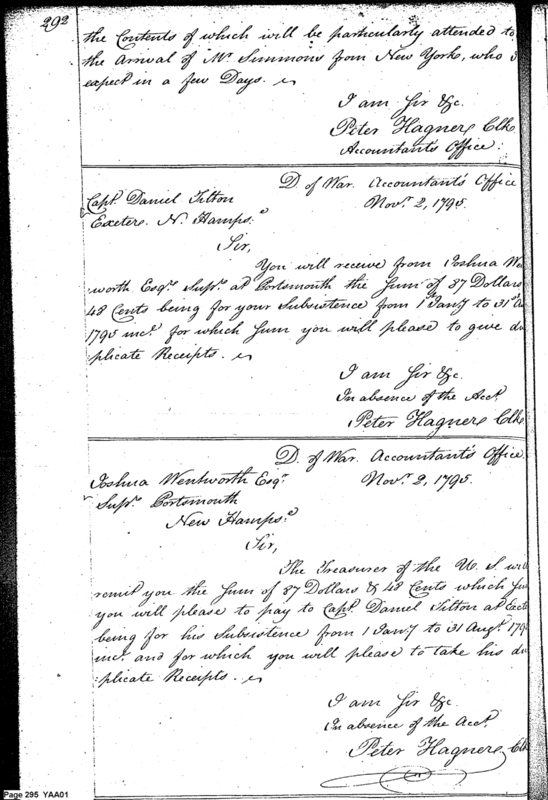 292
the Contents of which will be particularly attended to
the arrival of Mr Simmons from New York, who I
expect in a few Days.
I am Sir &c.
Peter Hagner Clk
Accountant's Office.
D of War. Accountant's Office
Novr. 2, 1795.
Capt. Daniel Tilton
Exeter. N. Hamps.e
Sir,
You will receive from Joshua Wen
worth Esqr. Supr. at Portsmouth the Sum of 87 Dollars
48 Cents being for your Subsistence from 1 Jany to 31st Au
1795 incl. for which Sum you will please to give du
plicate Receipts.
I am Sir &c.
In absence of the Acct.
Peter Hagner Clk
D. of War. Accountant's Office
Novr. 2, 1795.
Joshua Wentworth Esqr.
Supr. Portsmouth
New Hamps.e
Sir,
The Treasurer of the U. S. will
remit you the Sum of 87 Dollars & 48 Cents which Sum
you will please to pay to Capt. Daniel Tilton at Exete
being for his Subsistence from 1 Jany to 31 Augt. 1795
incl. and for which you will please to take his du
plicate Receipts.
I am Sir &c.
In absence of the Acct.
Peter Hagner Clk
Page 295 YAA01